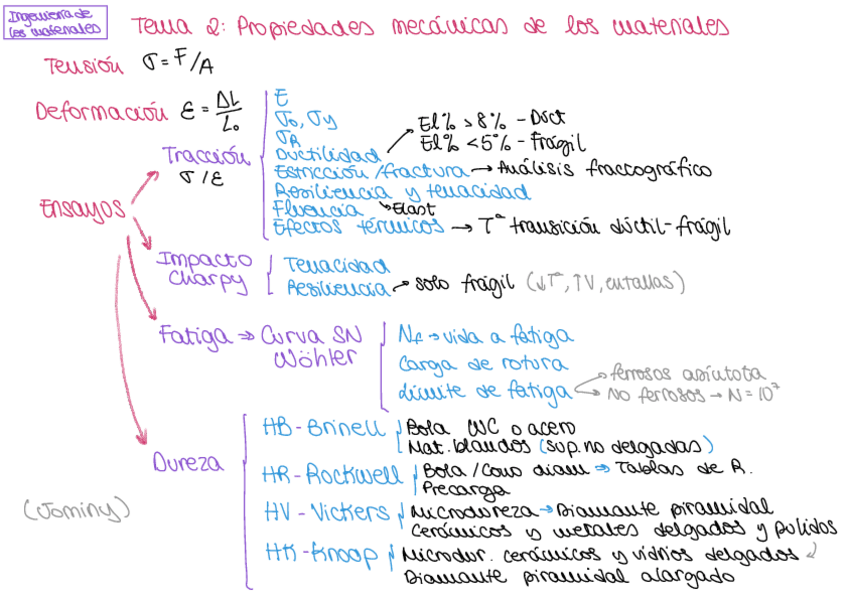 Ingeniería de los materiales
Tema 2: Propiedades mecánicas de los materiales
Tensión σ = F/A
Deformación ε = ΔL/L₀
Ensayos
Tracción σ/ε
E
σ₀, σy
σR
Ductilidad
El% > 8% - Dúct
El% < 5% - Frágil
Estricción/fractura → Análisis fraccográfico
Resiliencia y tenacidad
Elast
Fluencia
Efectos térmicos → Tª transición dúctil-frágil
Impacto Charpy
Tenacidad
Resiliencia → solo frágil (↓Tª, ↑V, entallas)
Fatiga ⇒ Curva SN Wöhler
Nf → vida a fatiga
Carga de rotura
Límite de fatiga
ferrosos asíntota
No ferrosos → N = 10⁷
Dureza
HB - Brinell
Bola WC o acero
Mat. blandos (sup. no delgadas)
HR - Rockwell
Bola/Cono diam ⇒ Tablas de R.
Precarga
HV - Vickers
Microdureza → Diamante piramidal
Cerámicos y metales delgados y pulidos
HK - Knoop
Microdur. cerámicos y vidrios delgados
Diamante piramidal alargado
(Jominy)